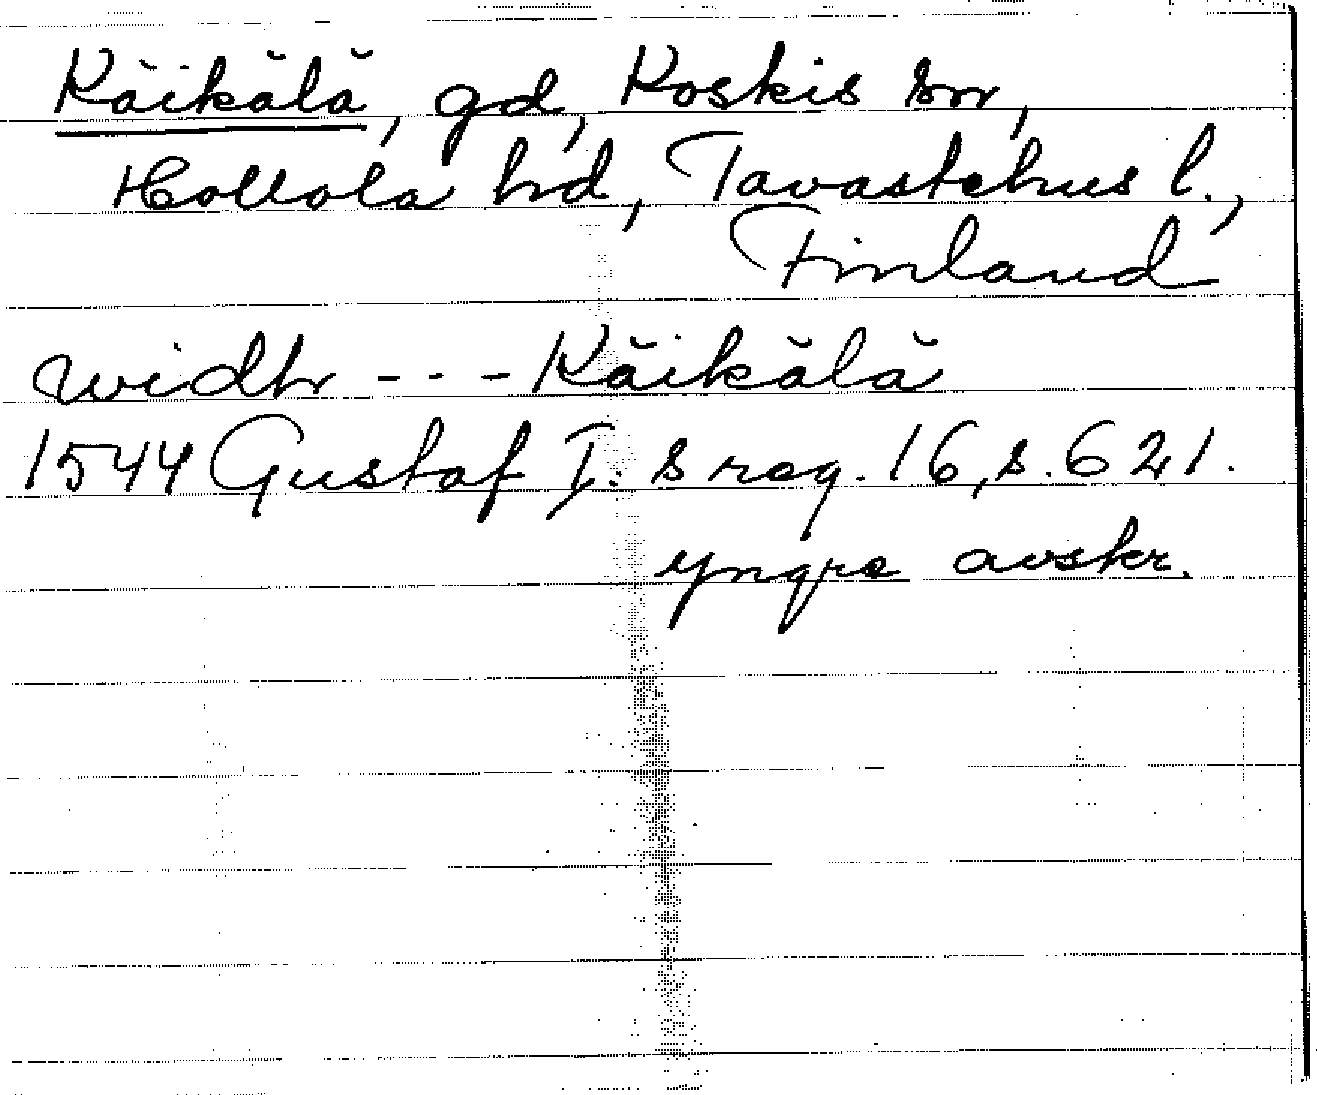 Käikälä, gd, Koskis sn,
Hollola hd, Tavastehus l.,
Finland
widhr - - - Käikälä
1544 Gustaf I:s reg. 16, s. 621.
yngre avskr.